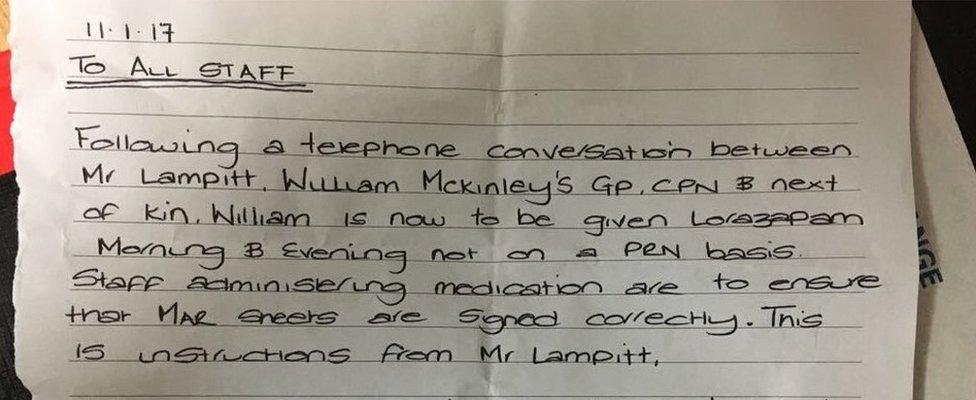 11.1.17
TO ALL STAFF
Following a telephone conversation between
Mr Lampitt, William Mckinley's GP, CPN & next
of kin. William is now to be given Lorazapam
Morning & Evening not on a PRN basis.
Staff administering medication are to ensure
that MAR sheets are signed correctly. This
is instructions from Mr Lampitt,
NGE